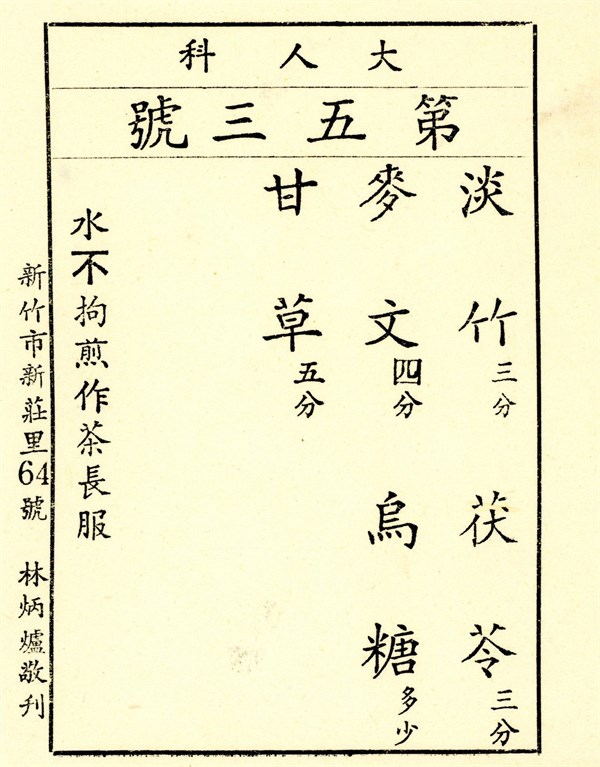 大人科
第五三號
淡竹三分　茯苓三分
麥文四分　烏糖多少
甘草五分
水不拘煎作茶長服
新竹市新莊里64號　林炳爐敬刋